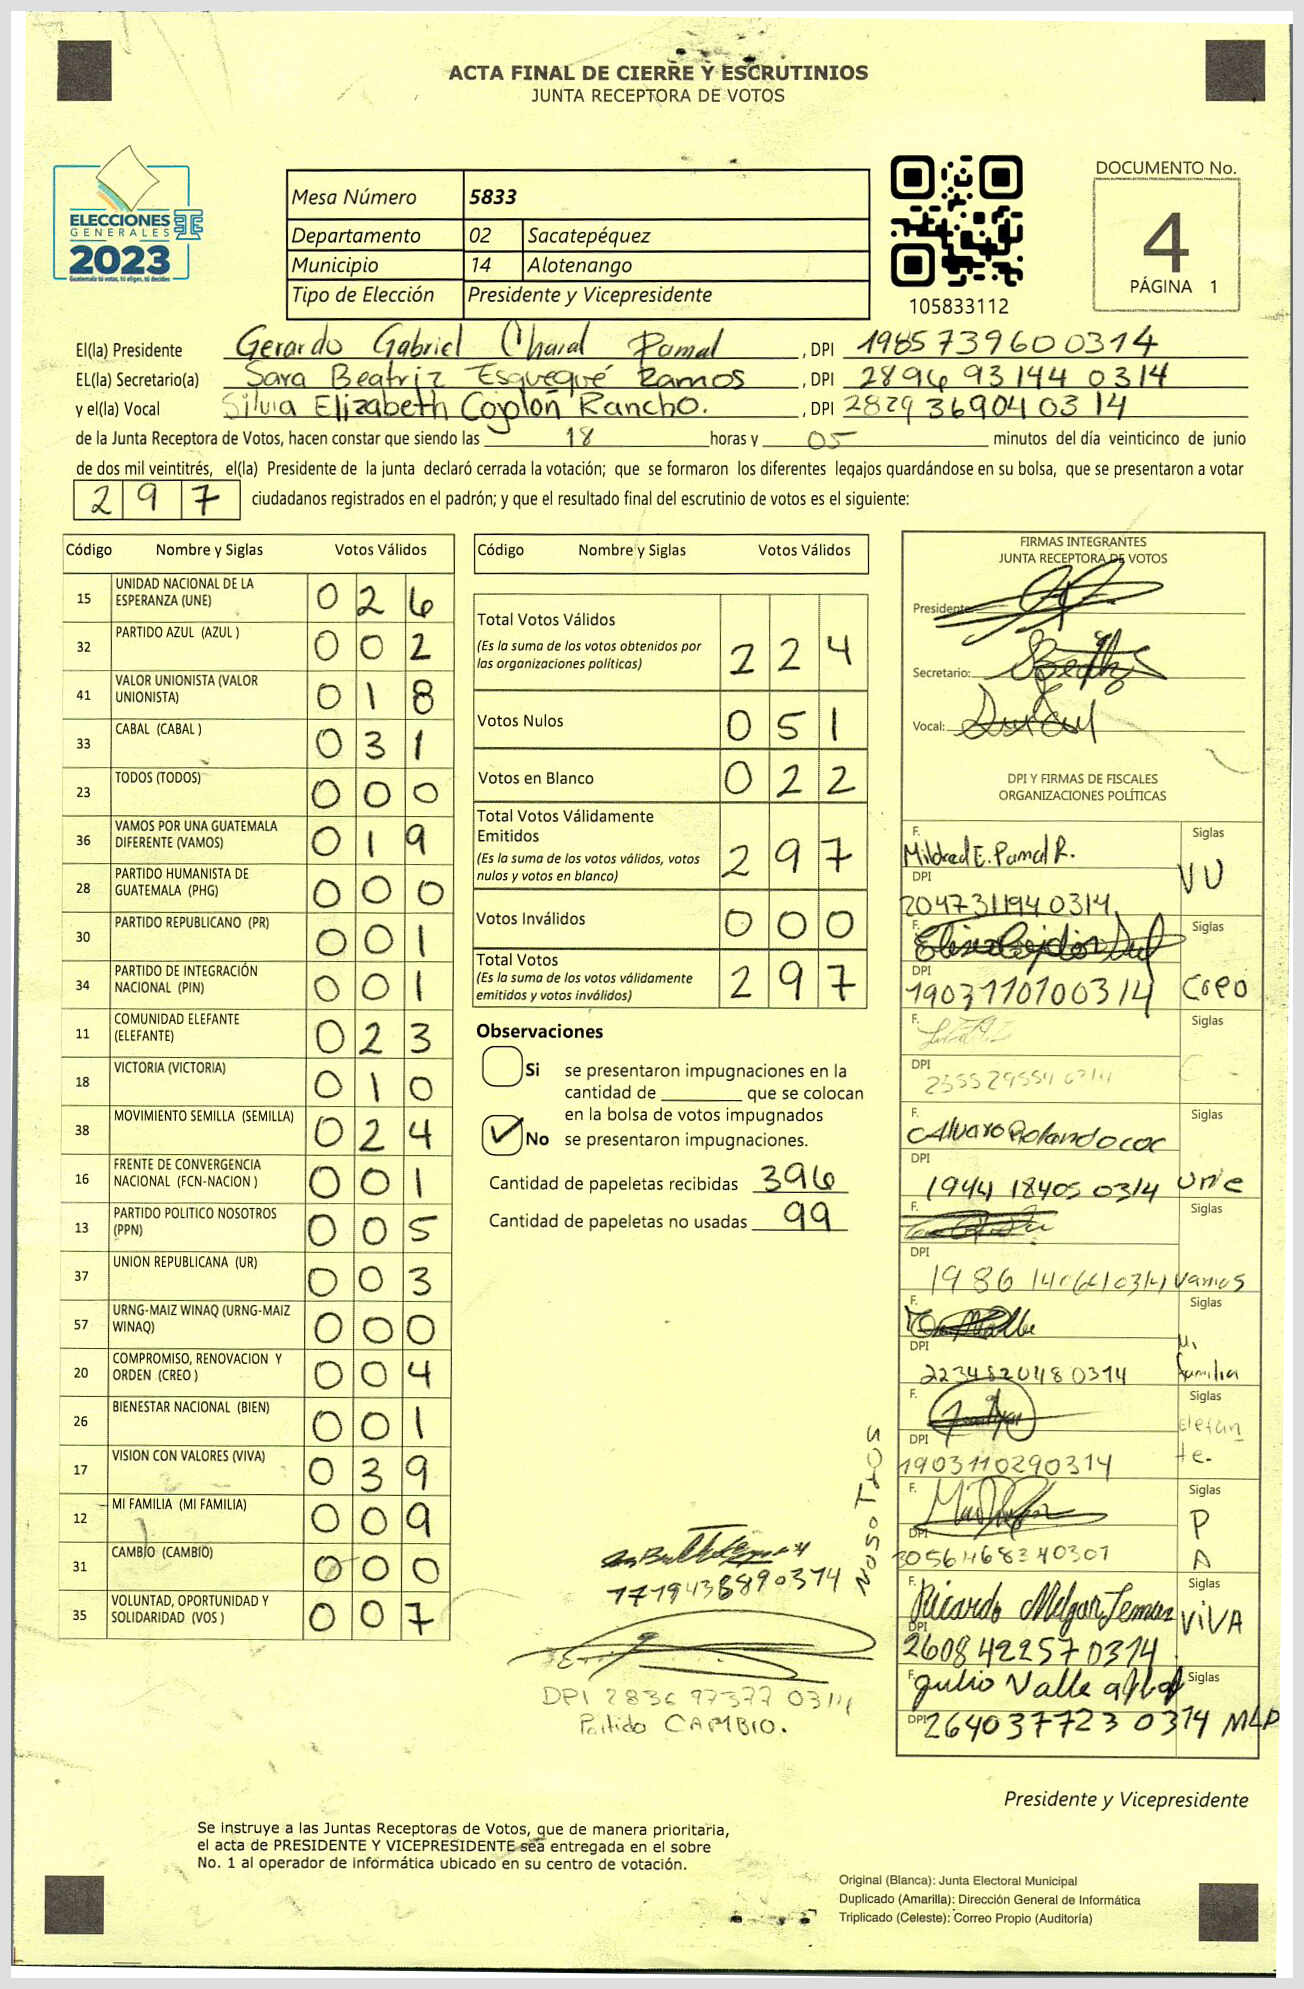 ACTA FINAL DE CIERRE Y ESCRUTINIOS
JUNTA RECEPTORA DE VOTOS
ELECCIONES
GENERALES
2023
Guatemala tú votas, tú eliges, tú decides
Mesa Número 5833
Departamento 02 Sacatepéquez
Municipio 14 Alotenango
Tipo de Elección Presidente y Vicepresidente
105833112
DOCUMENTO No.
4
PÁGINA 1
El(la) Presidente Gerardo Gabriel Pamal , DPI 1985739600314
EL(la) Secretario(a) Sara Beatriz Esquequé Ramos , DPI 2896931440314
y el(la) Vocal Silvia Elizabeth Cojolón Rancho. , DPI 2829369040314
de la Junta Receptora de Votos, hacen constar que siendo las 18 horas y 05 minutos del día veinticinco de junio
de dos mil veintitrés, el(la) Presidente de la junta declaró cerrada la votación; que se formaron los diferentes legajos guardándose en su bolsa, que se presentaron a votar
297 ciudadanos registrados en el padrón; y que el resultado final del escrutinio de votos es el siguiente:
Código Nombre y Siglas Votos Válidos
15 UNIDAD NACIONAL DE LA ESPERANZA (UNE) 026
32 PARTIDO AZUL (AZUL ) 002
41 VALOR UNIONISTA (VALOR UNIONISTA) 018
33 CABAL (CABAL ) 031
23 TODOS (TODOS) 000
36 VAMOS POR UNA GUATEMALA DIFERENTE (VAMOS) 019
28 PARTIDO HUMANISTA DE GUATEMALA (PHG) 000
30 PARTIDO REPUBLICANO (PR) 001
34 PARTIDO DE INTEGRACIÓN NACIONAL (PIN) 001
11 COMUNIDAD ELEFANTE (ELEFANTE) 023
18 VICTORIA (VICTORIA) 010
38 MOVIMIENTO SEMILLA (SEMILLA) 024
16 FRENTE DE CONVERGENCIA NACIONAL (FCN-NACION ) 001
13 PARTIDO POLITICO NOSOTROS (PPN) 005
37 UNION REPUBLICANA (UR) 003
57 URNG-MAIZ WINAQ (URNG-MAIZ WINAQ) 000
20 COMPROMISO, RENOVACION Y ORDEN (CREO ) 004
26 BIENESTAR NACIONAL (BIEN) 001
17 VISION CON VALORES (VIVA) 039
12 MI FAMILIA (MI FAMILIA) 009
31 CAMBIO (CAMBIO) 000
35 VOLUNTAD, OPORTUNIDAD Y SOLIDARIDAD (VOS ) 007
Código Nombre y Siglas Votos Válidos
Total Votos Válidos 224
(Es la suma de los votos obtenidos por
las organizaciones políticas)
Votos Nulos 051
Votos en Blanco 022
Total Votos Válidamente
Emitidos 297
(Es la suma de los votos válidos, votos
nulos y votos en blanco)
Votos Inválidos 000
Total Votos 297
(Es la suma de los votos válidamente
emitidos y votos inválidos)
Observaciones
Si se presentaron impugnaciones en la
cantidad de ________ que se colocan
en la bolsa de votos impugnados
No se presentaron impugnaciones.
Cantidad de papeletas recibidas 396
Cantidad de papeletas no usadas 99
1779438890314
NOSOTROS
DPI 2836 97377 0314
Partido CAMBIO.
FIRMAS INTEGRANTES
JUNTA RECEPTORA DE VOTOS
Presidente:
Secretario:
Vocal:
DPI Y FIRMAS DE FISCALES
ORGANIZACIONES POLÍTICAS
F. Mildred E. Pamal R. Siglas VU
DPI 2047311940314
F. Siglas Creo
DPI 1903110100314
F. Siglas
DPI
F. Alvaro Rolando coc Siglas une
DPI 1944 18405 0314
F. Siglas Vamos
DPI
F. Siglas Mi familia
DPI 2234820480314
F. Siglas elefante.
DPI 1903110290314
F. Siglas P A
DPI 3056468340301
F. Ricardo Melgar Temaz Siglas VIVA
DPI 2608422570314
F. julio Valle Siglas MLP
DPI 2640377230314
Presidente y Vicepresidente
Se instruye a las Juntas Receptoras de Votos, que de manera prioritaria,
el acta de PRESIDENTE Y VICEPRESIDENTE sea entregada en el sobre
No. 1 al operador de informática ubicado en su centro de votación.
Original (Blanca): Junta Electoral Municipal
Duplicado (Amarilla): Dirección General de Informática
Triplicado (Celeste): Correo Propio (Auditoría)